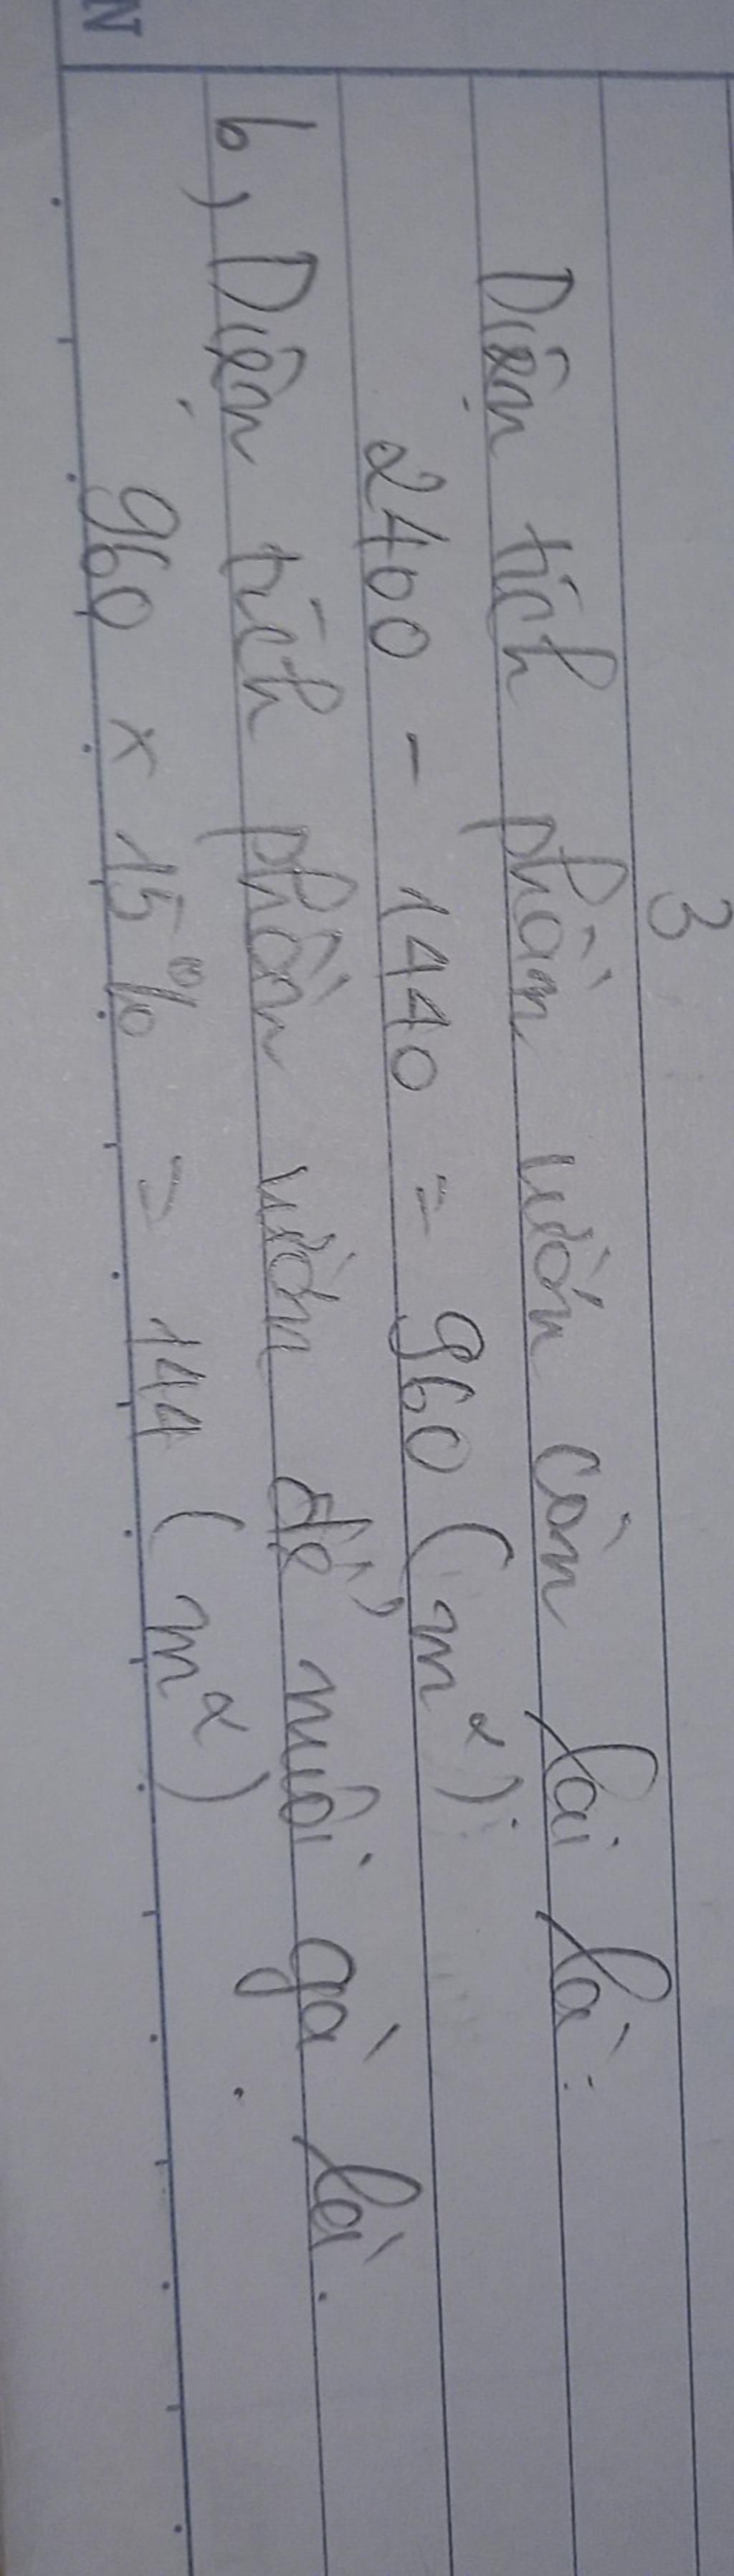 3
Diện tích phần vườn còn lại là:
2400 - 1440 = 960 (m²):
b, Diện tích phần vườn để nuôi gà là.
960 x 15% = 144 (m²)
N